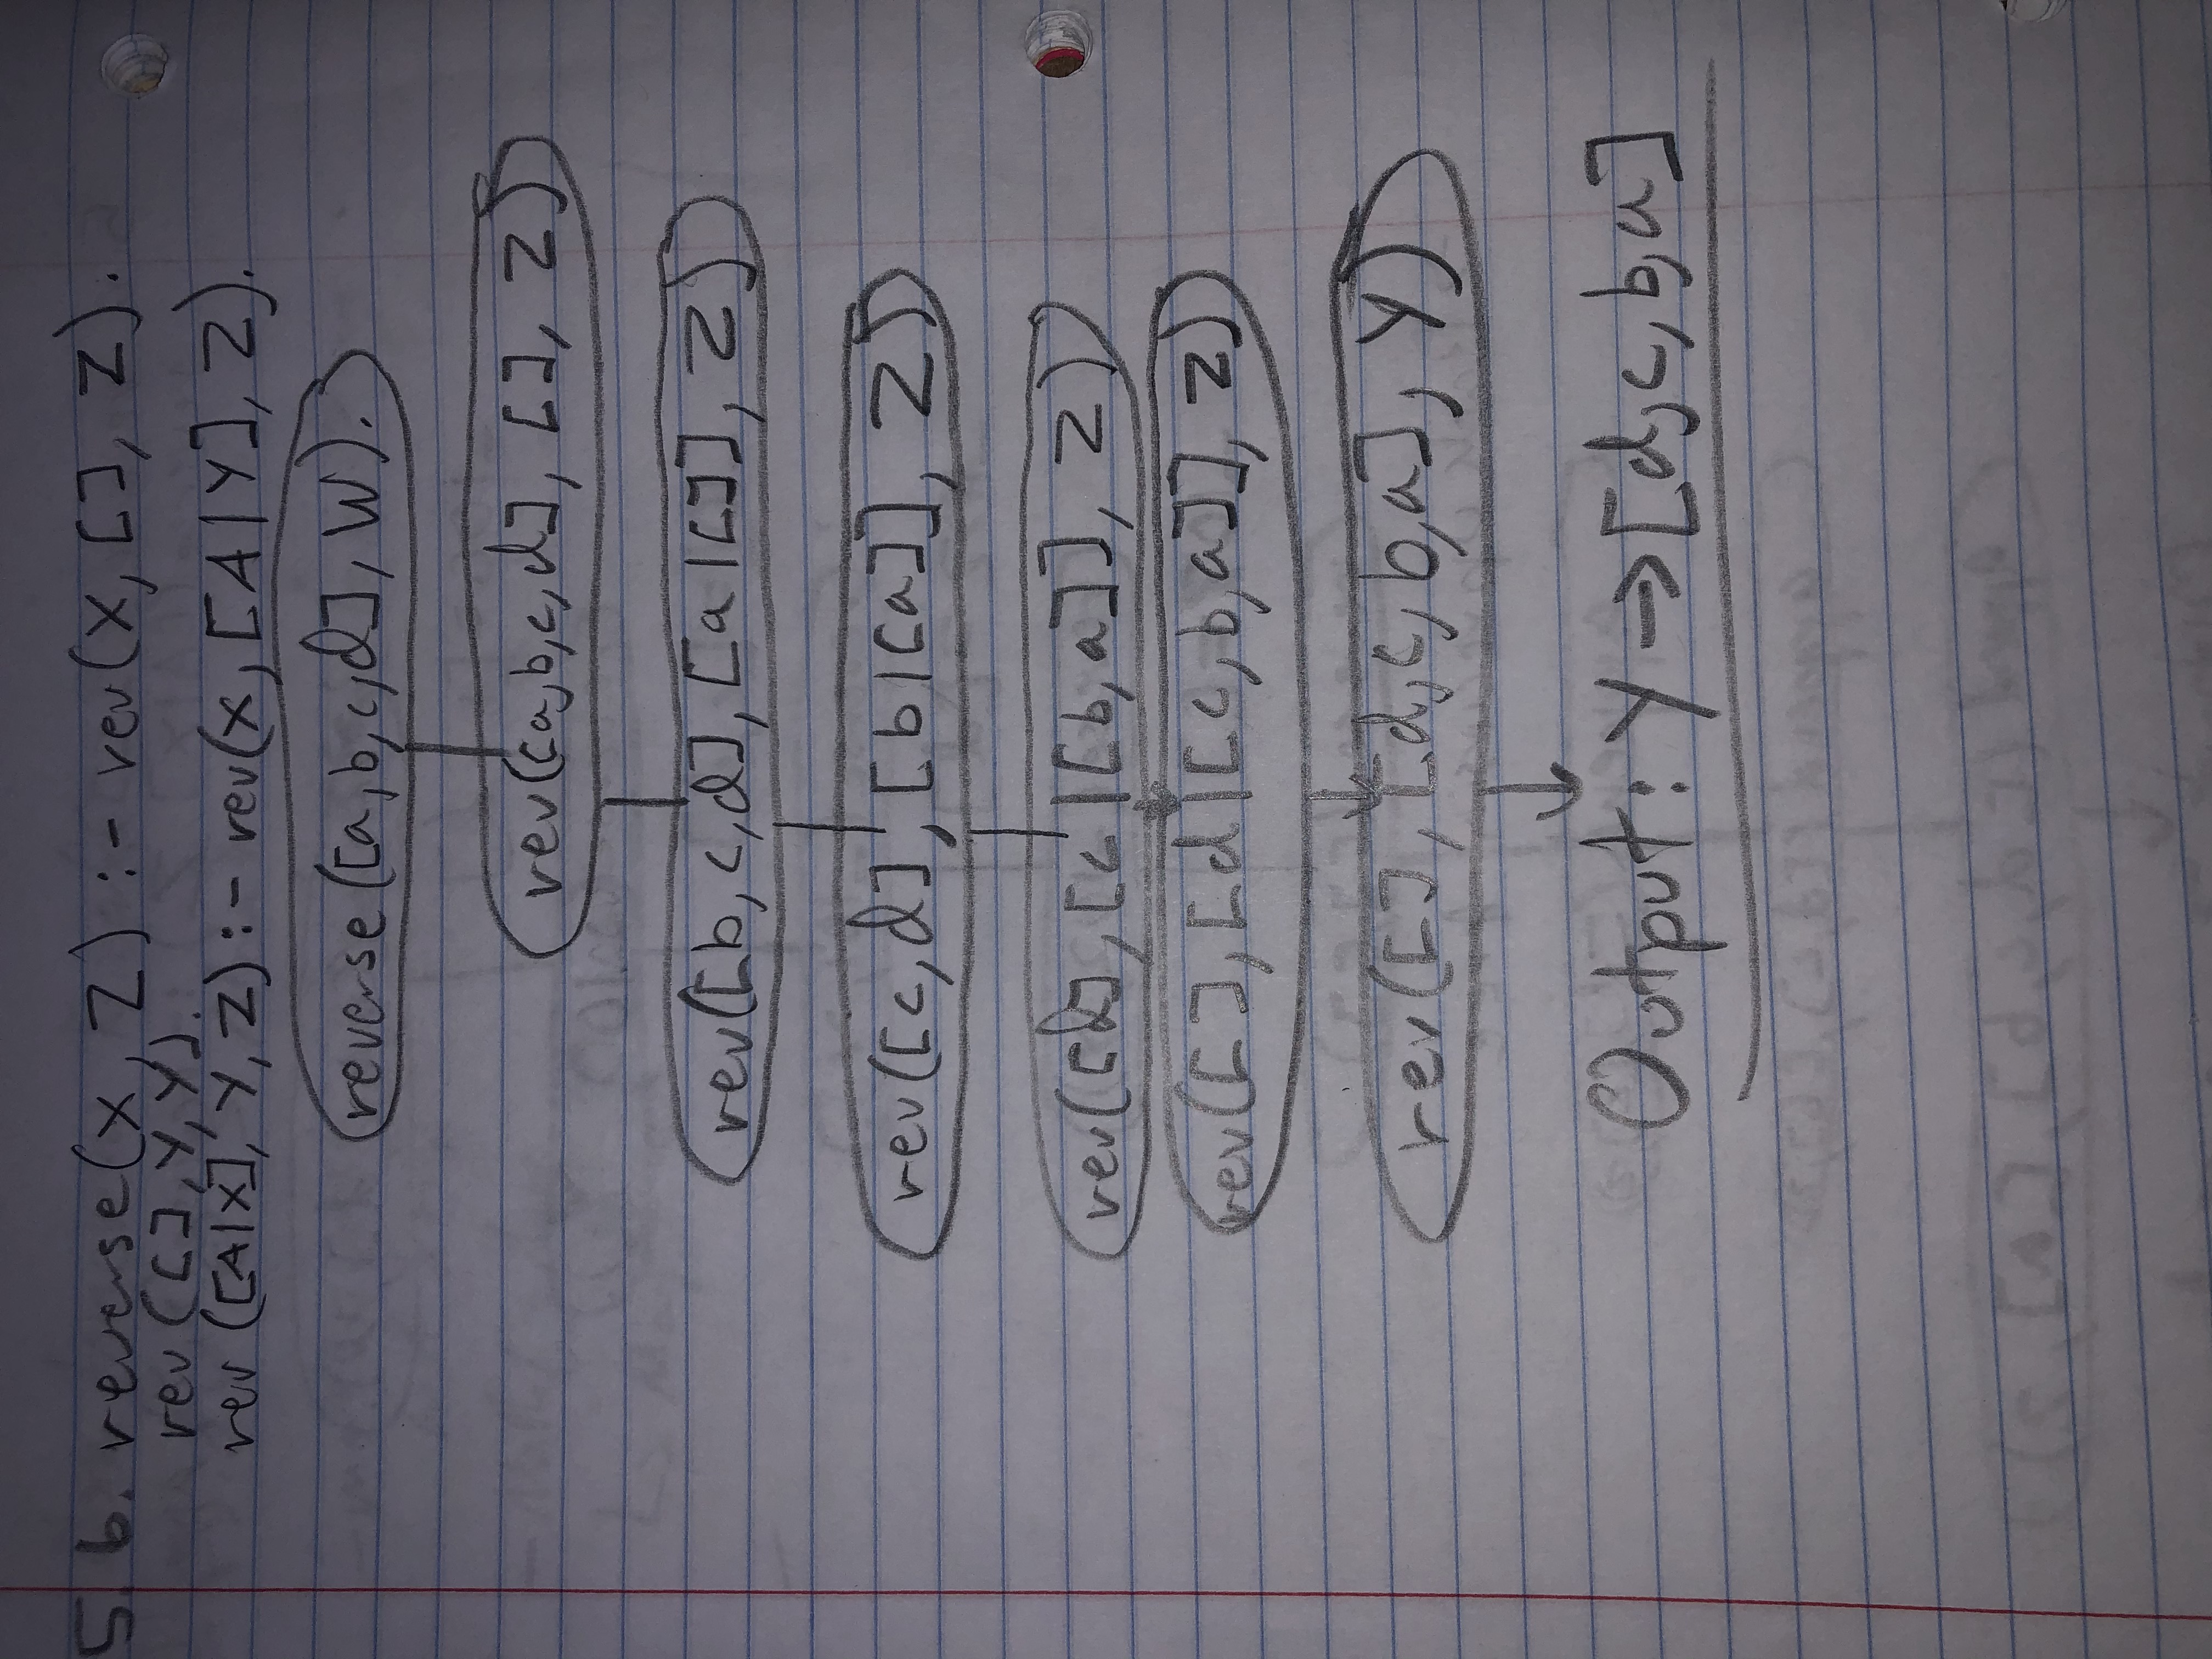 5. b. reverse(X, Z) :- rev(X, [], Z).
rev([], Y, Y).
rev([A|X], Y, Z) :- rev(X, [A|Y], Z).
reverse([a,b,c,d], W).
rev([a,b,c,d], [], Z)
rev([b,c,d], [a|[]], Z)
rev([c,d], [b|[a]], Z)
rev([d], [c|[b,a]], Z)
rev([], [d|[c,b,a]], Z)
rev([], [d,c,b,a], Y)
Output: Y → [d,c,b,a]